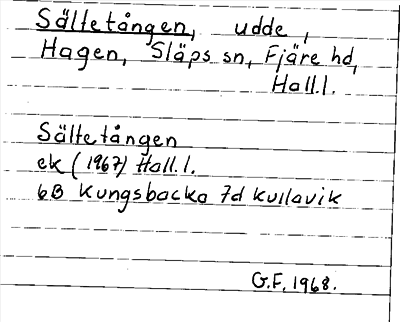 Sältetången, udde,
Hagen, Släps sn, Fjäre hd,
Hall.l.
Sältetången
ek (1967) Hall.l.
6B Kungsbacka 7d Kullavik
G.F. 1968.